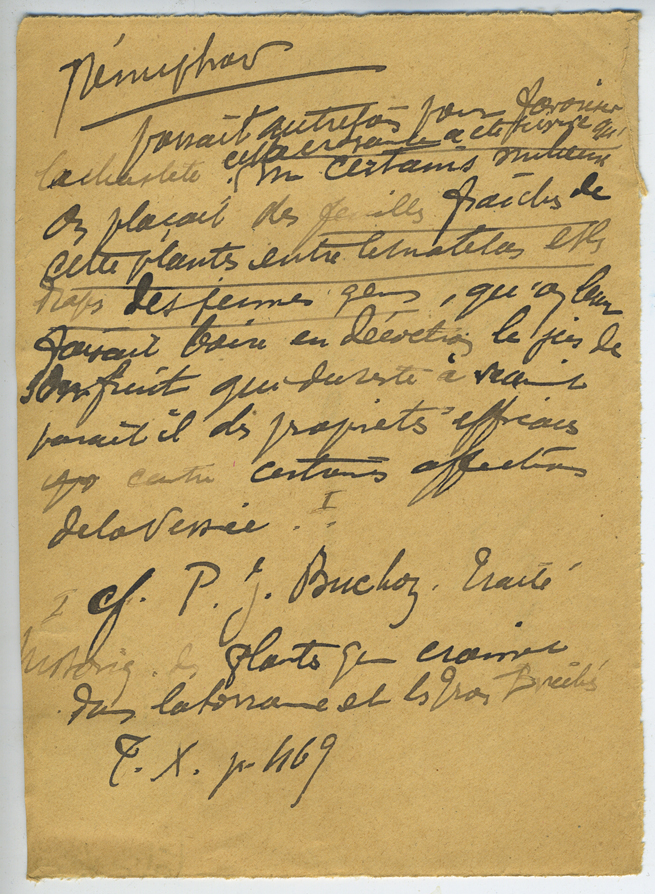 Nénuphar
passait autrefois pour favoriser
cette croyance a été
la chasteté. En certains milieux
on plaçait des feuilles fraîches de
cette plantes entre le matelas et les
draps des jeunes gens, qu'on leur
faisait boire en décoction le jus de
son fruit qui du reste a
paraît il des propriétés efficaces
contre certaines affections
de la vessie. I
I cf. P. J. Buchoz. Traité
historiq. des plantes qui croissent
dans la Lorraine et les trois Evêchés
T. X. p. 469